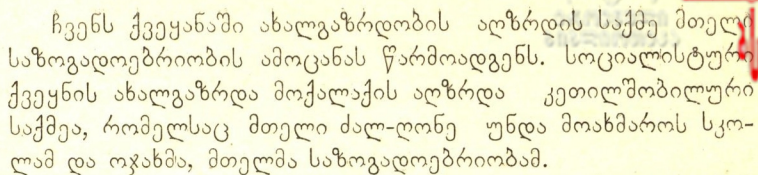 ჩვენს ქვეყანაში ახალგაზრდობის აღზრდის საქმე მთელი
საზოგადოებრიობის ამოცანას წარმოადგენს. სოციალისტური
ქვეყნის ახალგაზრდა მოქალაქის აღზრდა კეთილშობილური
საქმეა, რომელსაც მთელი ძალ-ღონე უნდა მოახმაროს სკო-
ლამ და ოჯახმა, მთელმა საზოგადოებრიობამ.